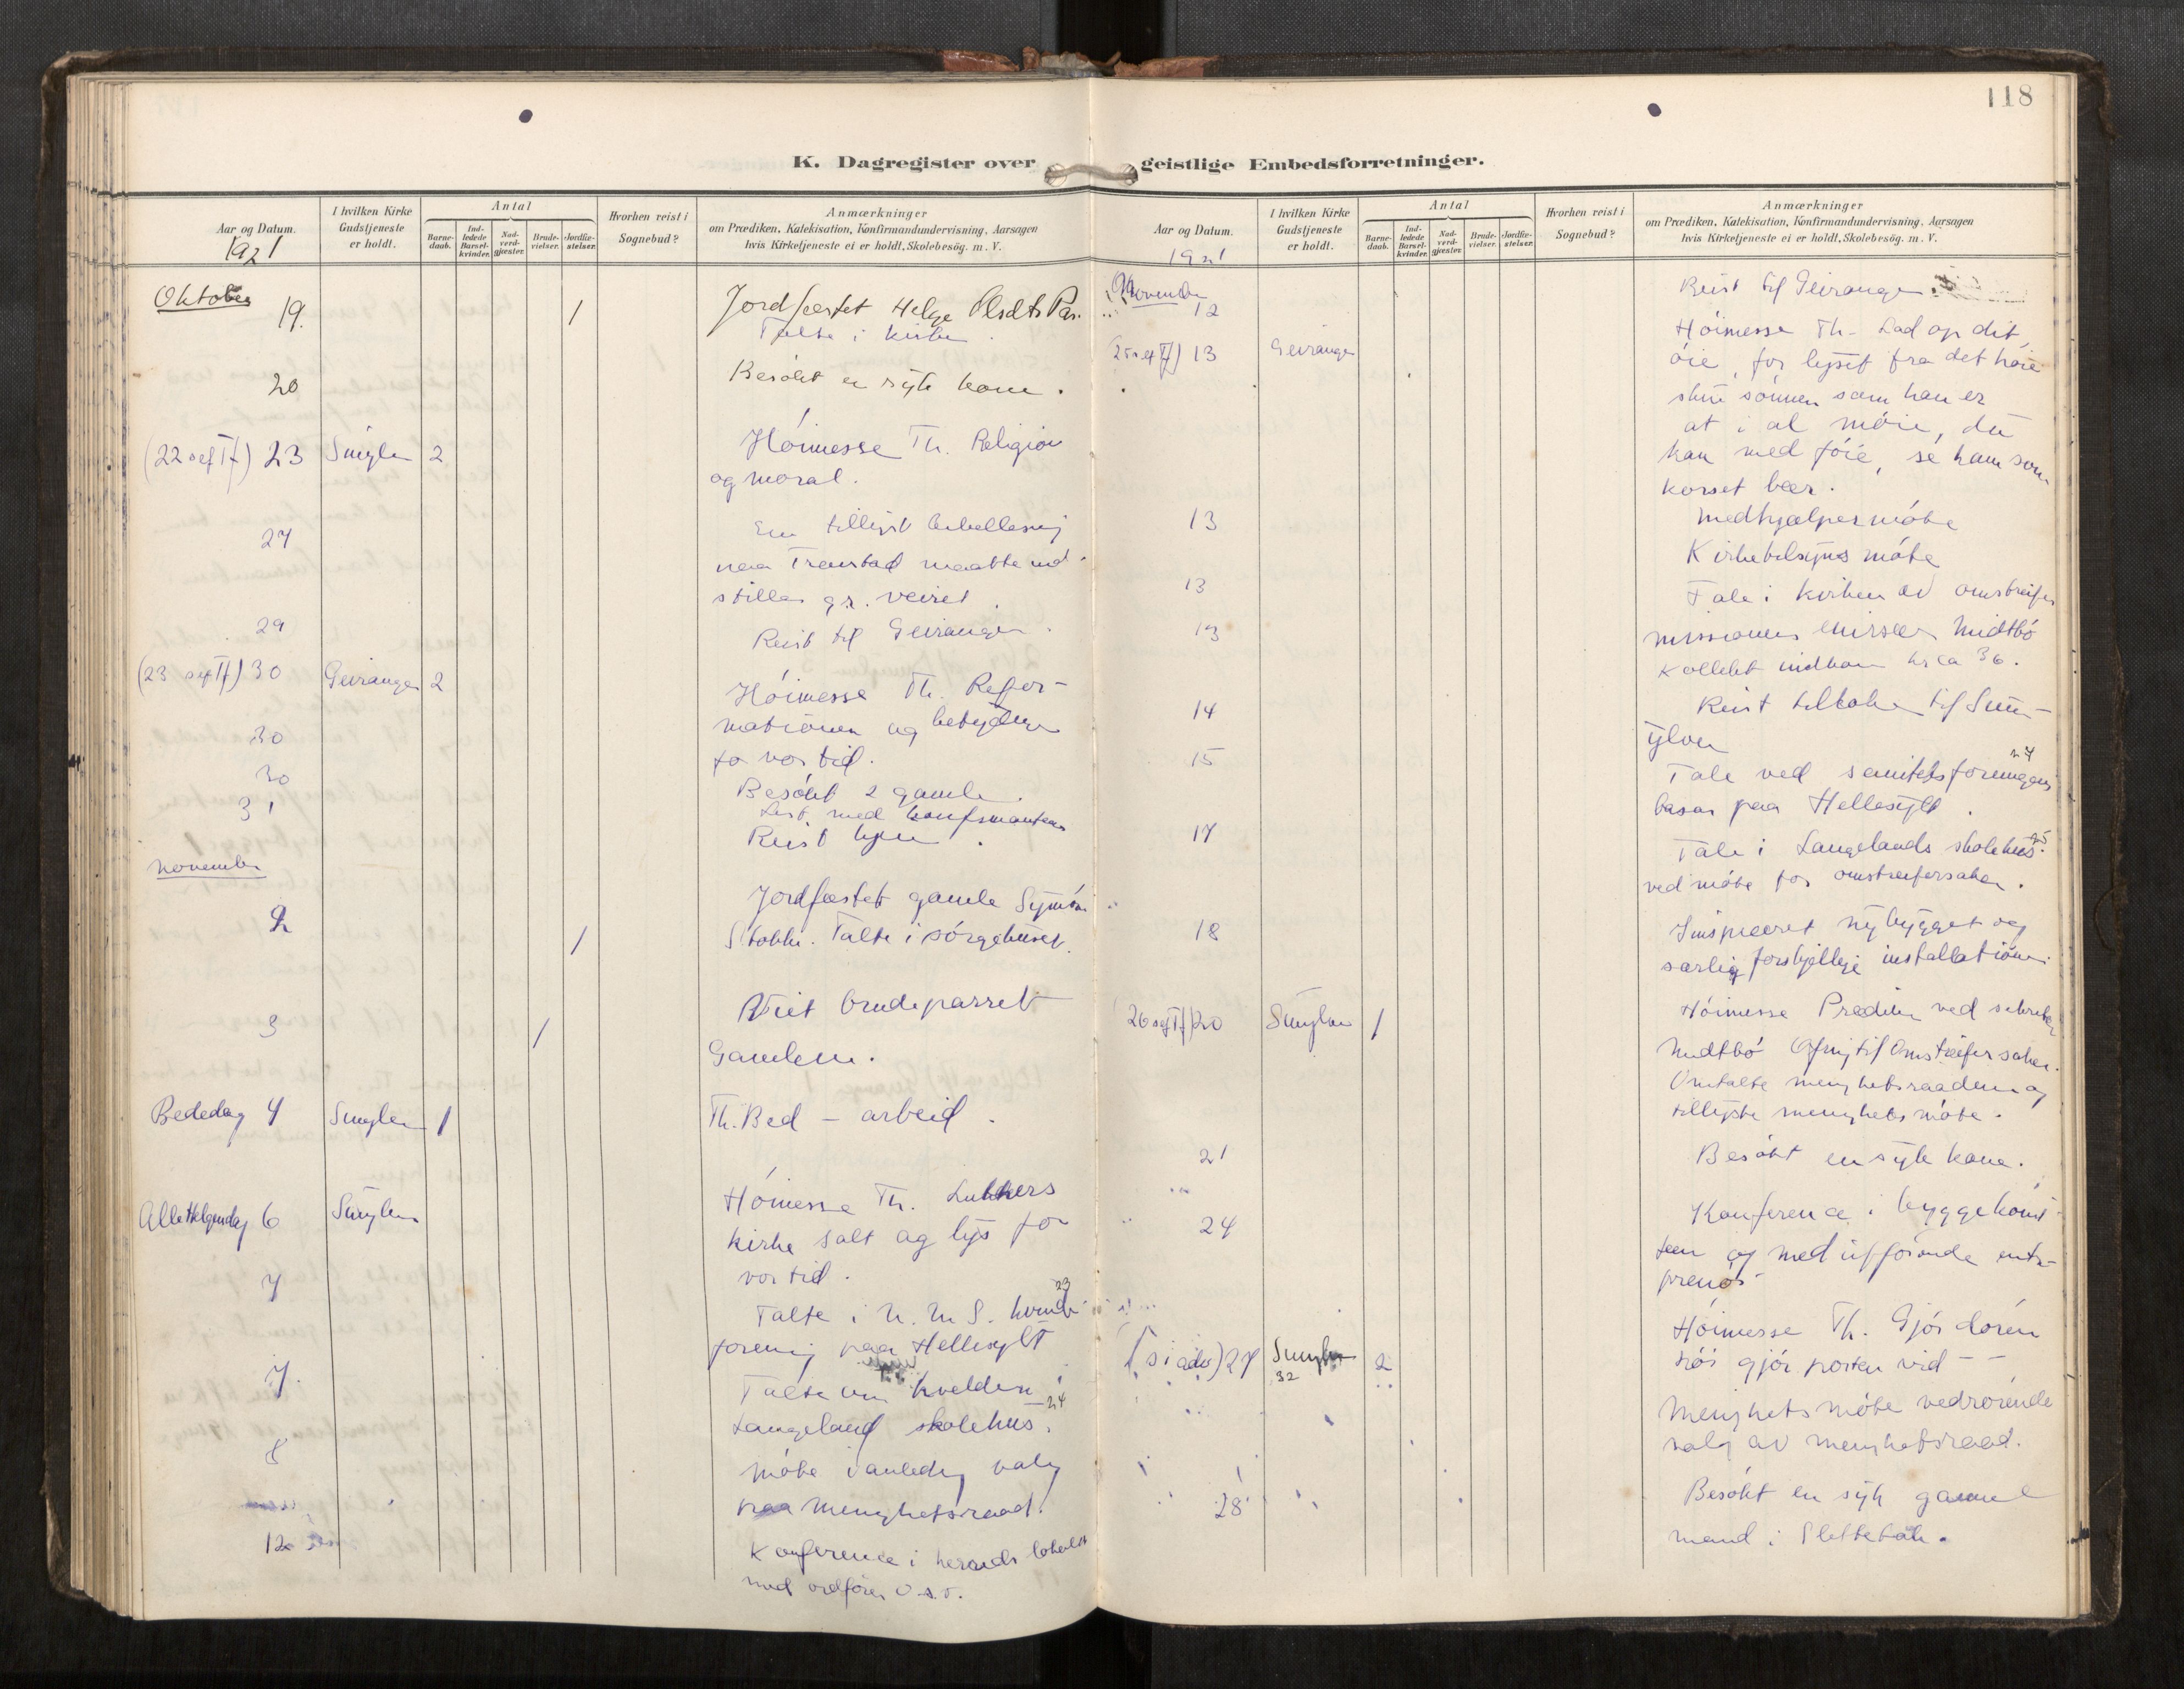 118
K. Dagregister over geistlige Embedsforretninger.
Aar og Datum.
1921
I hvilken Kirke Gudstjeneste er holdt.
Antal
Barne-daab.
Ind-ledede Barsel-kvinder.
Nad-verd-gjæster.
Brude-vielser.
Jordfæ-stelser.
Hvorhen reist i Sognebud?
Anmærkninger
om Prædiken, Katekisation, Konfirmandundervisning, Aarsagen
hvis Kirketjeneste ei er holdt, Skolebesög. m. V.
Oktober 19. 1 Jordfæstet Helge Olsdtr
Talte i kirken.
20 Besökt en syk kone.
(22 s e f Tf) 23 Sunylven 2 Höimesse Th. Religion
og moral.
27 En tillyst bibellesning
paa Tronstad maatte ind-
stilles gr. veiret.
29 Reist til Geiranger.
(23 s e f Tf) 30 Geiranger 2 Höimesse Th. Refor-
mationen og betydning
for vor tid.
30 Besökt 2 gamle.
30 Lest med konfirmantene
31 Reist hjem.
November
2 1 Jordfæstet gamle
Stokke. Talte i sörgehuset.
3 1 Viet brudeparret
Gamlem.
Bededag 4 Sunylven 1 Th. Bed – arbeid.
Alle Helgensdag 6 Sunylven Höimesse Th. Luthers
kirke salt og lys for
vor tid.
7 Talte i N. M. S. kvinde- 23
forening paa Hellesylt
7. Talte om kvelden i
Langeland skolehus. 24
8 Möte i anledn valg
paa menighetsraad.
12 Konference i herreds lokalet
med ordförer o.s.v.
Aar og Datum.
1921
I hvilken Kirke Gudstjeneste er holdt.
Antal
Barne-daab.
Ind-ledede Barsel-kvinder.
Nad-verd-gjæster.
Brude-vielser.
Jordfæ-stelser.
Hvorhen reist i Sognebud?
Anmærkninger
om Prædiken, Katekisation, Konfirmandundervisning, Aarsagen
hvis Kirketjeneste ei er holdt, Skolebesög. m. V.
November
12 Reist til Geiranger.
(25 s e f Tf) 13 Geiranger Höimesse Th – Lad op dit
öie, for lyset fra det höie
skin sönnen som han er
at i al möie, du
kan med föie, se ham som
korset bær.
13 Medhjælpermöte
Kirketilsyns möte
13 Tale i kirken av omstreifer
13 missionens Midtbö
Kollekt indkom kr ca 36.
14 Reist tilbake til Sun-
ylven
15 Tale ved sanitetsforeningens 24
basar paa Hellesylt.
17 Tale i Langelands skolehus 25
ved möte for omstreifersaken.
18 Inspiceret nybygget og
særlig forskjellige installationer.
26 s e f Tf) 20 Sunylven 1 Höimesse Prædiken ved sekretær
Midtbö Ofring til Omstreifersaken.
Omtalte menighetsraadene og
tillyste menighets möte.
21 Besökt en syk kone.
24 Konference i byggekomi-
teen og med utförende entre-
prenör
(1 s i adv) 27 Sunylven 2 Höimesse Th. Gjör dören
32
höi gjör porten vid –
Menighetsmöte vedrörende
valg av menighetsraad.
28 Besökt en syk gammel
mand i Slettebak.